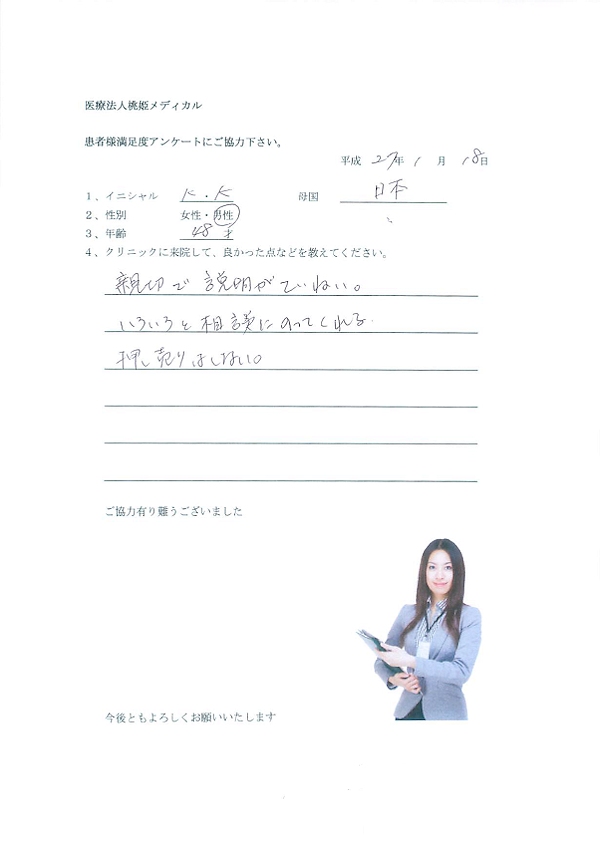 医療法人桃姫メディカル
患者様満足度アンケートにご協力下さい。
平成 27年 1 月 18日
1、イニシャル K.K 母国 日本
2、性別 女性・男性
3、年齢 48才
4、クリニックに来院して、良かった点などを教えてください。
親切で説明がていねい。
いろいろと相談にのってくれる.
押し売りはしない。
ご協力有り難うございました
今後ともよろしくお願いいたします